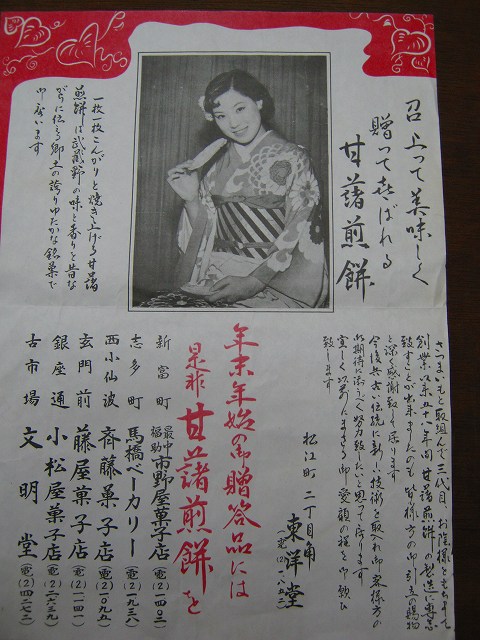 召上って美味しく
贈って喜ばれる
甘藷煎餅
一枚一枚こんがりと焼き上げる甘藷
煎餅は武蔵野の味と香りと昔な
がらに伝える郷土の誇りゆたかな銘菓で
御座います
さつまいもと取組んで三代目、お陰様をもちまして
創業以来五十八年間甘藷煎餅の製造に専念
致すことが出来ましたのも皆様方の御引立の賜物
と深く感謝致して居ります
今後共古い伝統に新しい技術を取入れ御客様方の
御期待に添うべく努力致したいと思って居ります
宜しく以前にまさる御愛顧の程を御願ひ
致します
松江町二丁目角
東洋堂
年末年始の御贈答品には
是非甘藷煎餅を
新富町 最中福助 市野屋菓子店 (電(2)一四〇三)
志多町 馬橋ベーカリー (電(2)二九三八)
西小仙波 斉藤菓子店 (電(2)一〇九五)
玄門前 藤屋菓子店 (電(2)一一四一)
銀座通 小松屋菓子店 (電(2)二六三九)
古市場 文明堂 (電(2)四二七二)